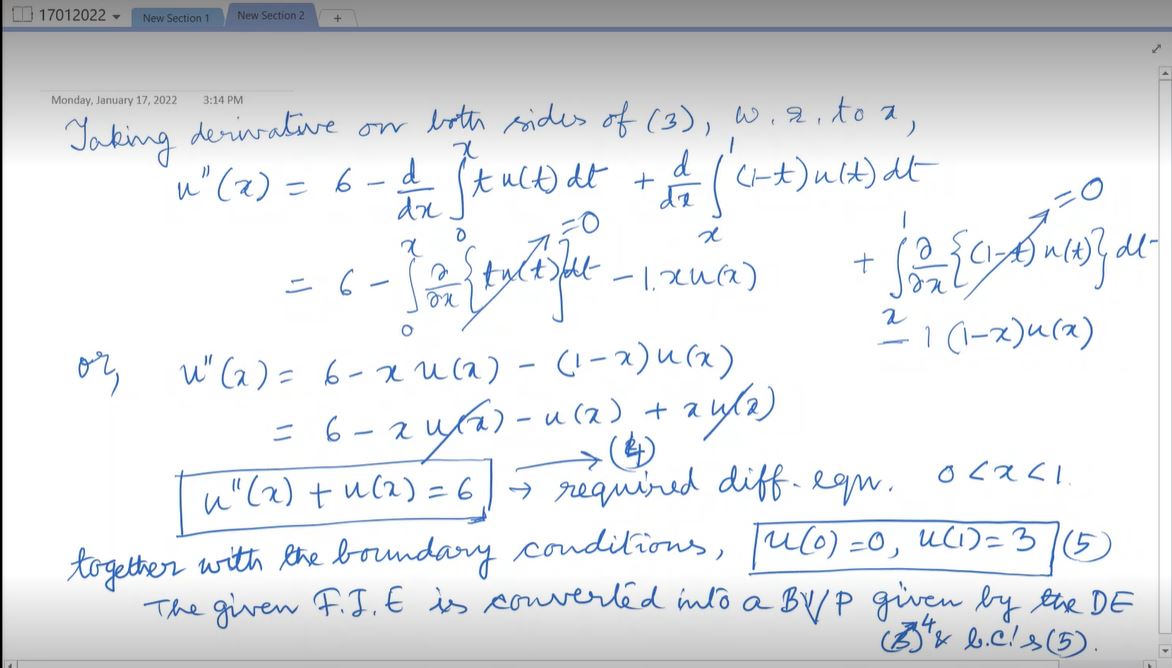 17012022
New Section 1
New Section 2
+
Monday, January 17, 2022 3:14 PM
Taking derivative on both sides of (3), w.r. to x,
u''(x) = 6 - d/dx ∫_0^x t u(t) dt + d/dx ∫_x^1 (1-t) u(t) dt
= 6 - ∫_0^x ∂/∂x {t u(t)} dt =0 - 1. x u(x) + ∫_x^1 ∂/∂x {(1-t) u(t)} dt =0
- 1 (1-x) u(x)
or, u''(x) = 6 - x u(x) - (1-x) u(x)
= 6 - x u(x) - u(x) + x u(x)
u''(x) + u(x) = 6 → (4) → required diff. eqn. 0 < x < 1.
together with the boundary conditions, u(0) = 0, u(1) = 3 (5)
The given F.I.E is converted into a BVP given by the DE
(4) & b.c.'s (5).